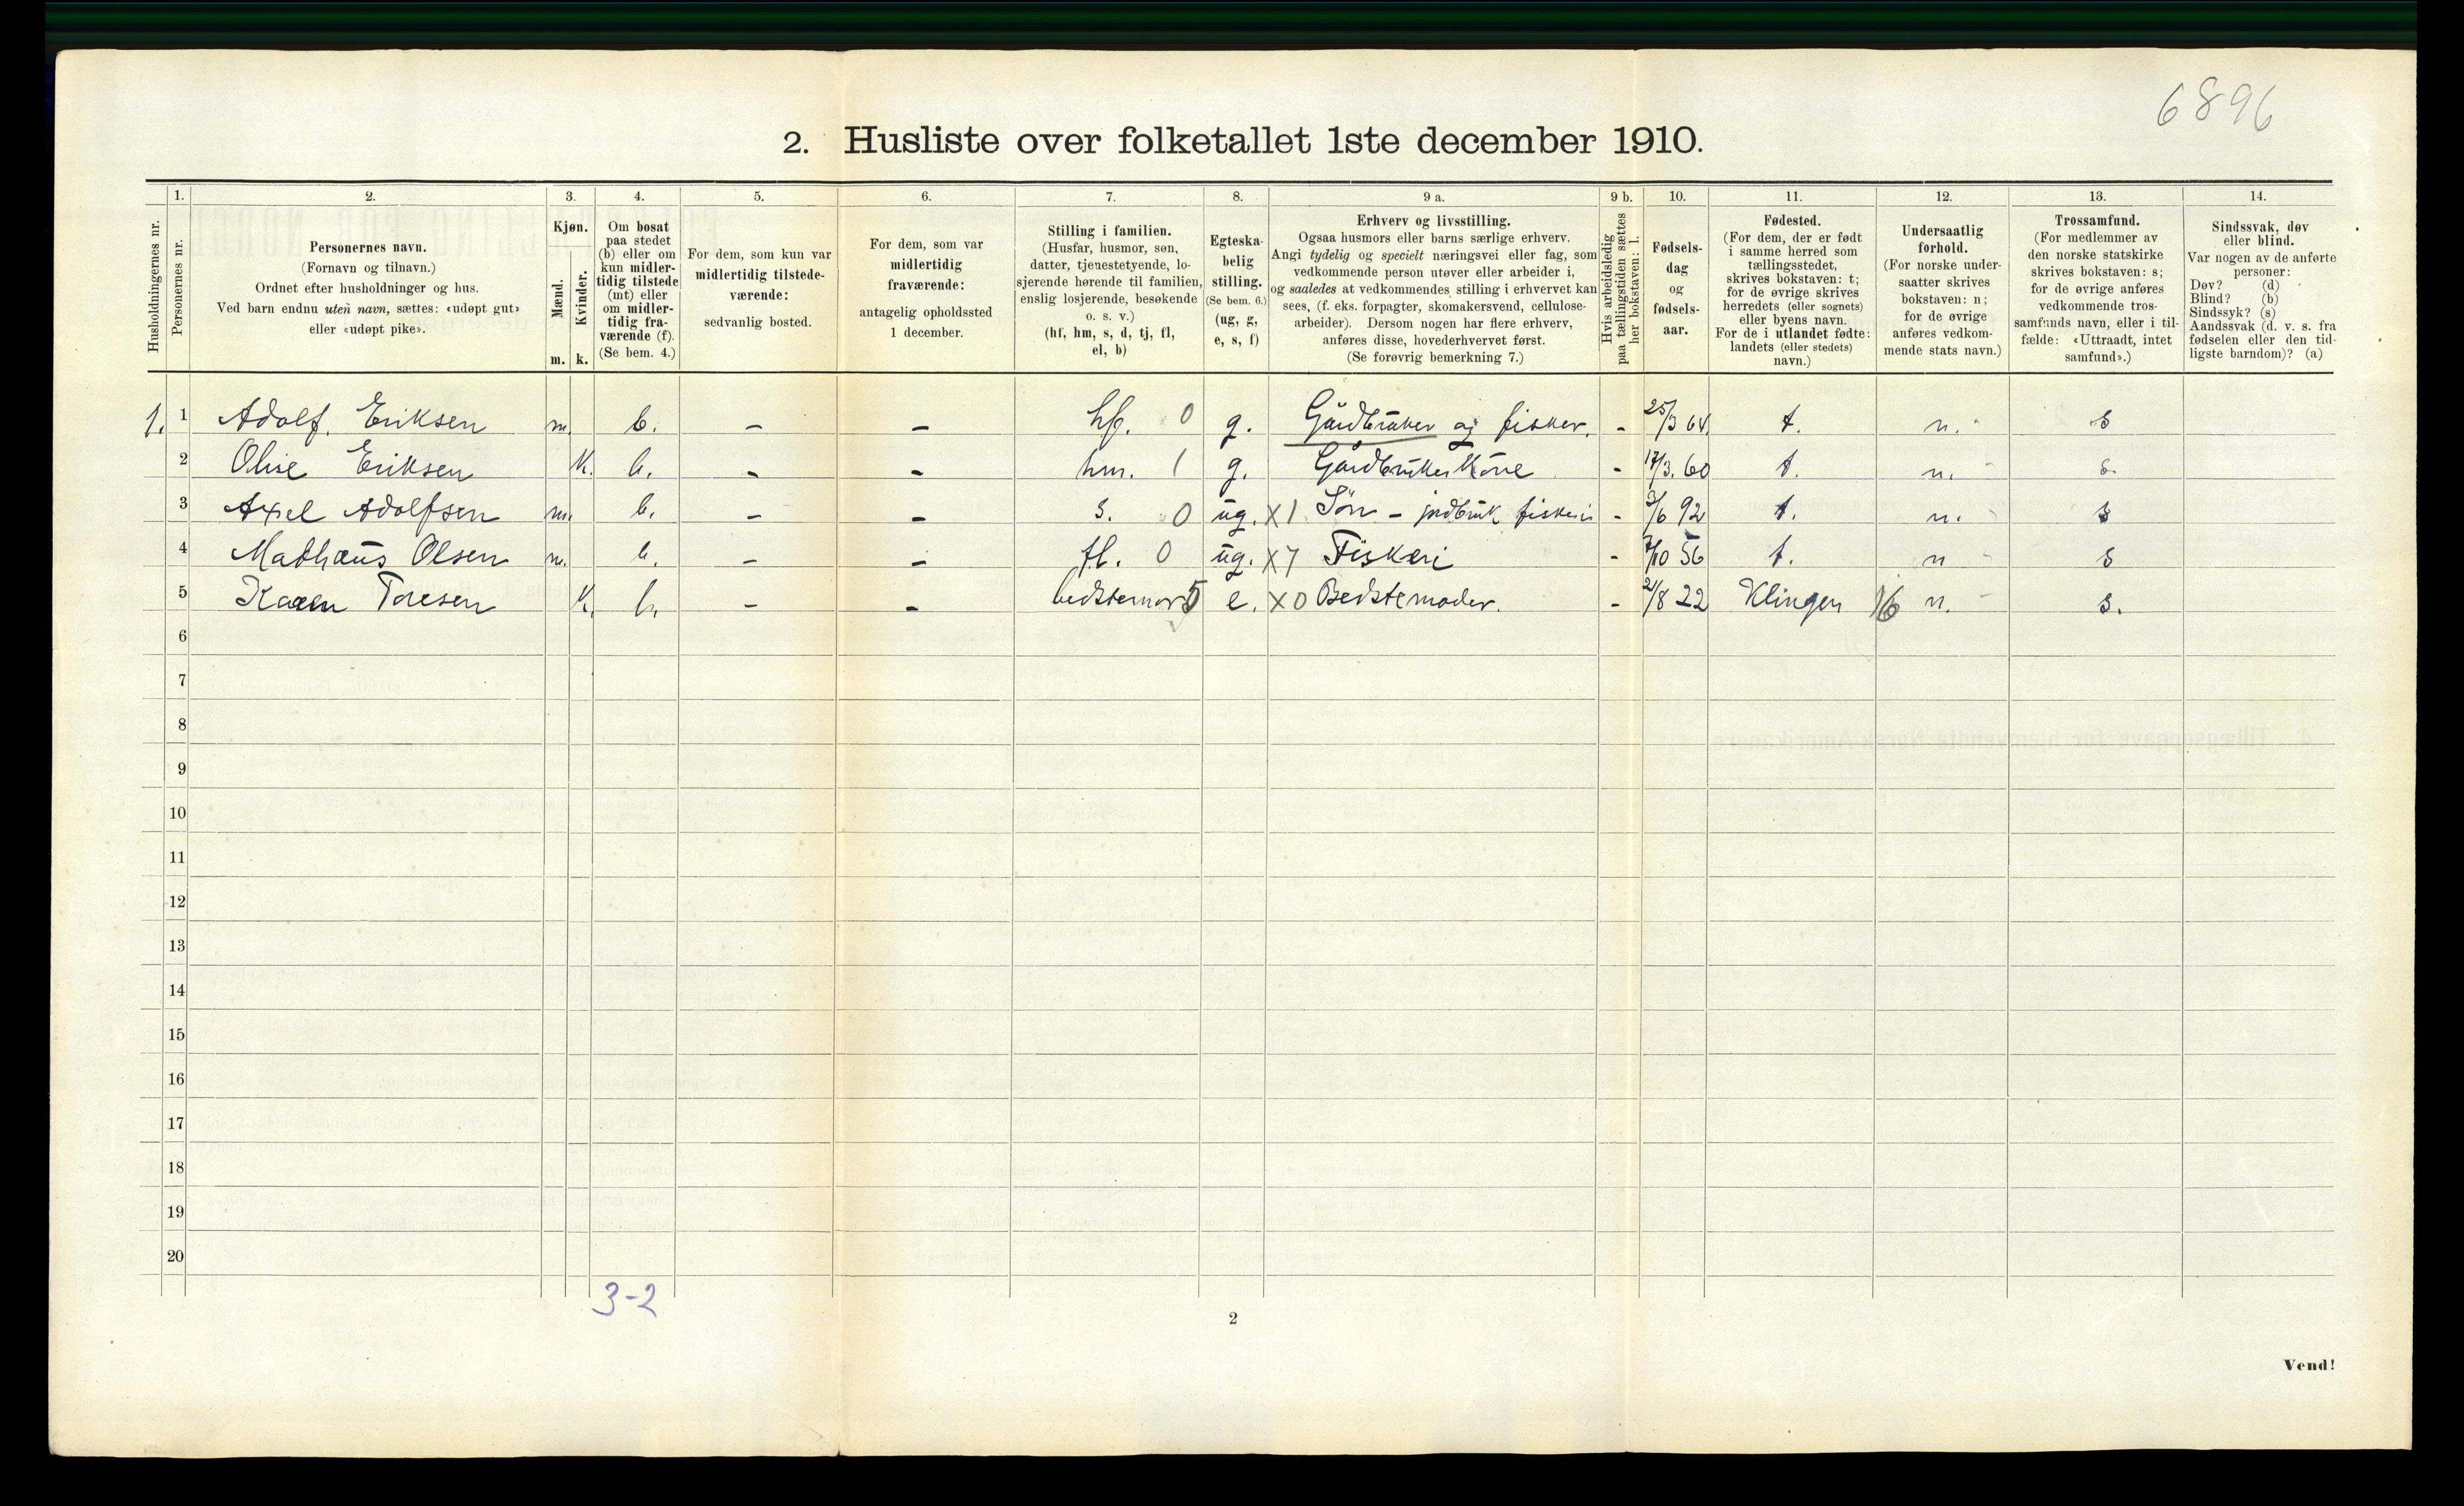 6896
2. Husliste over folketallet 1ste december 1910.
1. 2. 3. 4. 5. 6. 7. 8. 9 a. 9 b. 10. 11. 12. 13. 14.
Husholdningernes nr.
Personernes nr.
Personernes navn.
(Fornavn og tilnavn.)
Ordnet efter husholdninger og hus.
Ved barn endnu uten navn, sættes: «udøpt gut»
eller «udøpt pike».
Kjøn.
Mænd.
Kvinder.
m. k.
Om bosat
paa stedet
(b) eller om
kun midler-
tidig tilstede
(mt) eller
om midler-
tidig fra-
værende (f).
(Se bem. 4.)
For dem, som kun var
midlertidig tilstede-
værende:
sedvanlig bosted.
For dem, som var
midlertidig
fraværende:
antagelig opholdssted
1 december.
Stilling i familien.
(Husfar, husmor, søn,
datter, tjenestetyende, lo-
sjerende hørende til familien,
enslig losjerende, besøkende
o. s. v.)
(hf, hm, s, d, tj, fl,
el, b)
Egteska-
belig
stilling.
(Se bem. 6.)
(ug, g,
e, s, f)
Erhverv og livsstilling.
Ogsaa husmors eller barns særlige erhverv.
Angi tydelig og specielt næringsvei eller fag, som
vedkommende person utøver eller arbeider i,
og saaledes at vedkommendes stilling i erhvervet kan
sees, (f. eks. forpagter, skomakersvend, cellulose-
arbeider). Dersom nogen har flere erhverv,
anføres disse, hovederhvervet først.
(Se forøvrig bemerkning 7.)
Hvis arbeidsledig
paa tællingstiden sættes
her bokstaven: l.
Fødsels-
dag
og
fødsels-
aar.
Fødested.
(For dem, der er født
i samme herred som
tællingsstedet,
skrives bokstaven: t;
for de øvrige skrives
herredets (eller sognets)
eller byens navn.
For de i utlandet fødte:
landets (eller stedets)
navn.)
Undersaatlig
forhold.
(For norske under-
saatter skrives
bokstaven: n;
for de øvrige
anføres vedkom-
mende stats navn.)
Trossamfund.
(For medlemmer av
den norske statskirke
skrives bokstaven: s;
for de øvrige anføres
vedkommende tros-
samfunds navn, eller i til-
fælde: «Uttraadt, intet
samfund».)
Sindssvak, døv
eller blind.
Var nogen av de anførte
personer:
Døv? (d)
Blind? (b)
Sindssyk? (s)
Aandssvak (d. v. s. fra
fødselen eller den tid-
ligste barndom)? (a)
1. 1 Adolf. Eriksen m. b. - - hf. 0 g. Gårdbruker og fisker. - 25/3 64. t. n. s
2 Oline Eriksen K. b. - - hm. 1 g. Gårdbruker Kone - 17/3. 60 t. n. s.
3 Axel Adolfsen m. b. - - s. 0 ug. X1 Søn - jordbruk fiskeri - 3/6 92 t. n. s
4 Mathæus Olsen m. b. - - fl. 0 ug. X7 Fiskeri - 7/10 56 t. n s
5 Karen Toresen K. b. - - bedstemor 5 e. X0 Bedstemoder. - 21/8 22 Klingen 16 n. s.
6
7
8
9
10
11
12
13
14
15
16
17
18
19
20
3-2
2
Vend!